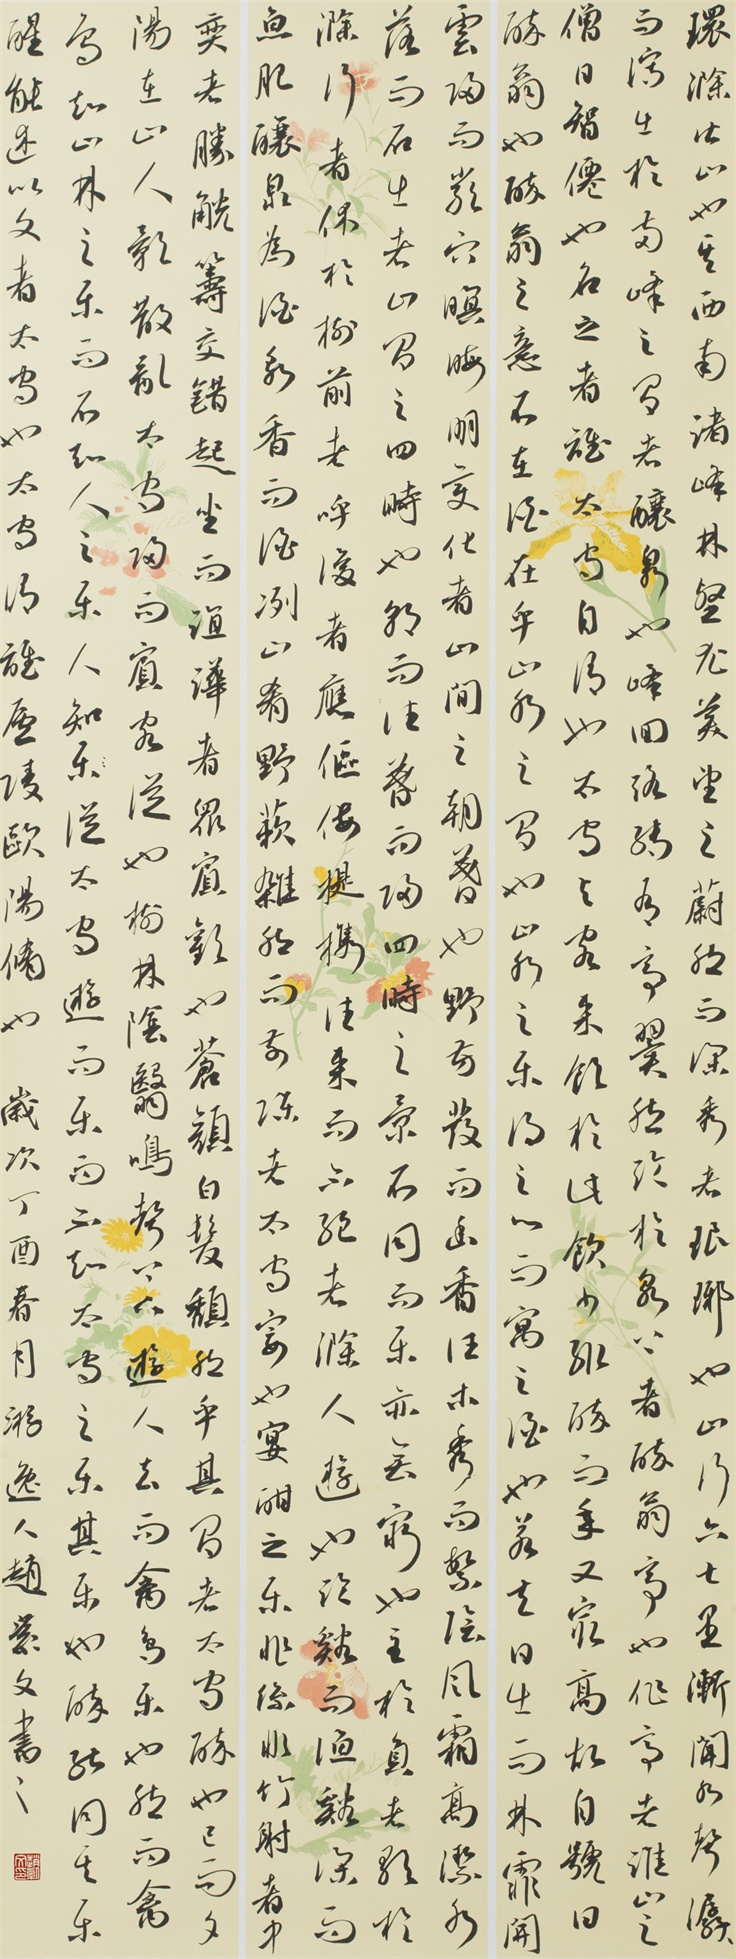 環滁皆山也其西南諸峰林壑尤美望之蔚然而深秀者琅琊也山行六七里漸聞水聲潺
而瀉出於兩峰之間者釀泉也峰回路轉有亭翼然臨於泉上者醉翁亭也作亭者誰山之
僧曰智僊也名之者誰太守自謂也太守與客來飲於此飲少輒醉而年又最高故自號曰
醉翁也醉翁之意不在酒在乎山水之間也山水之樂得之心而寓之酒也若夫日出而林霏開
雲歸而巖穴暝晦明變化者山間之朝暮也野芳發而幽香佳木秀而繁陰風霜高潔水
落而石出者山間之四時也朝而往暮而歸四時之景不同而樂亦無窮也至於負者歌於
滁行者休於樹前者呼後者應傴僂提攜往來而不絕者滁人遊也臨谿而漁谿深而
魚肥釀泉為酒泉香而酒冽山肴野蔌雜然而前陳者太守宴也宴酣之樂非絲非竹射者中
奕者勝觥籌交錯起坐而諠譁者眾賓歡也蒼顏白髮頹然乎其間者太守醉也已而夕
陽在山人影散亂太守歸而賓客從也樹林陰翳鳴聲上下遊人去而禽鳥樂也然而禽
鳥知山林之樂而不知人之樂人知樂從太守遊而樂而不知太守之樂其樂也醉能同其樂
醒能述以文者太守也太守謂誰廬陵歐陽脩也 歲次丁酉春月游逸人趙文書之